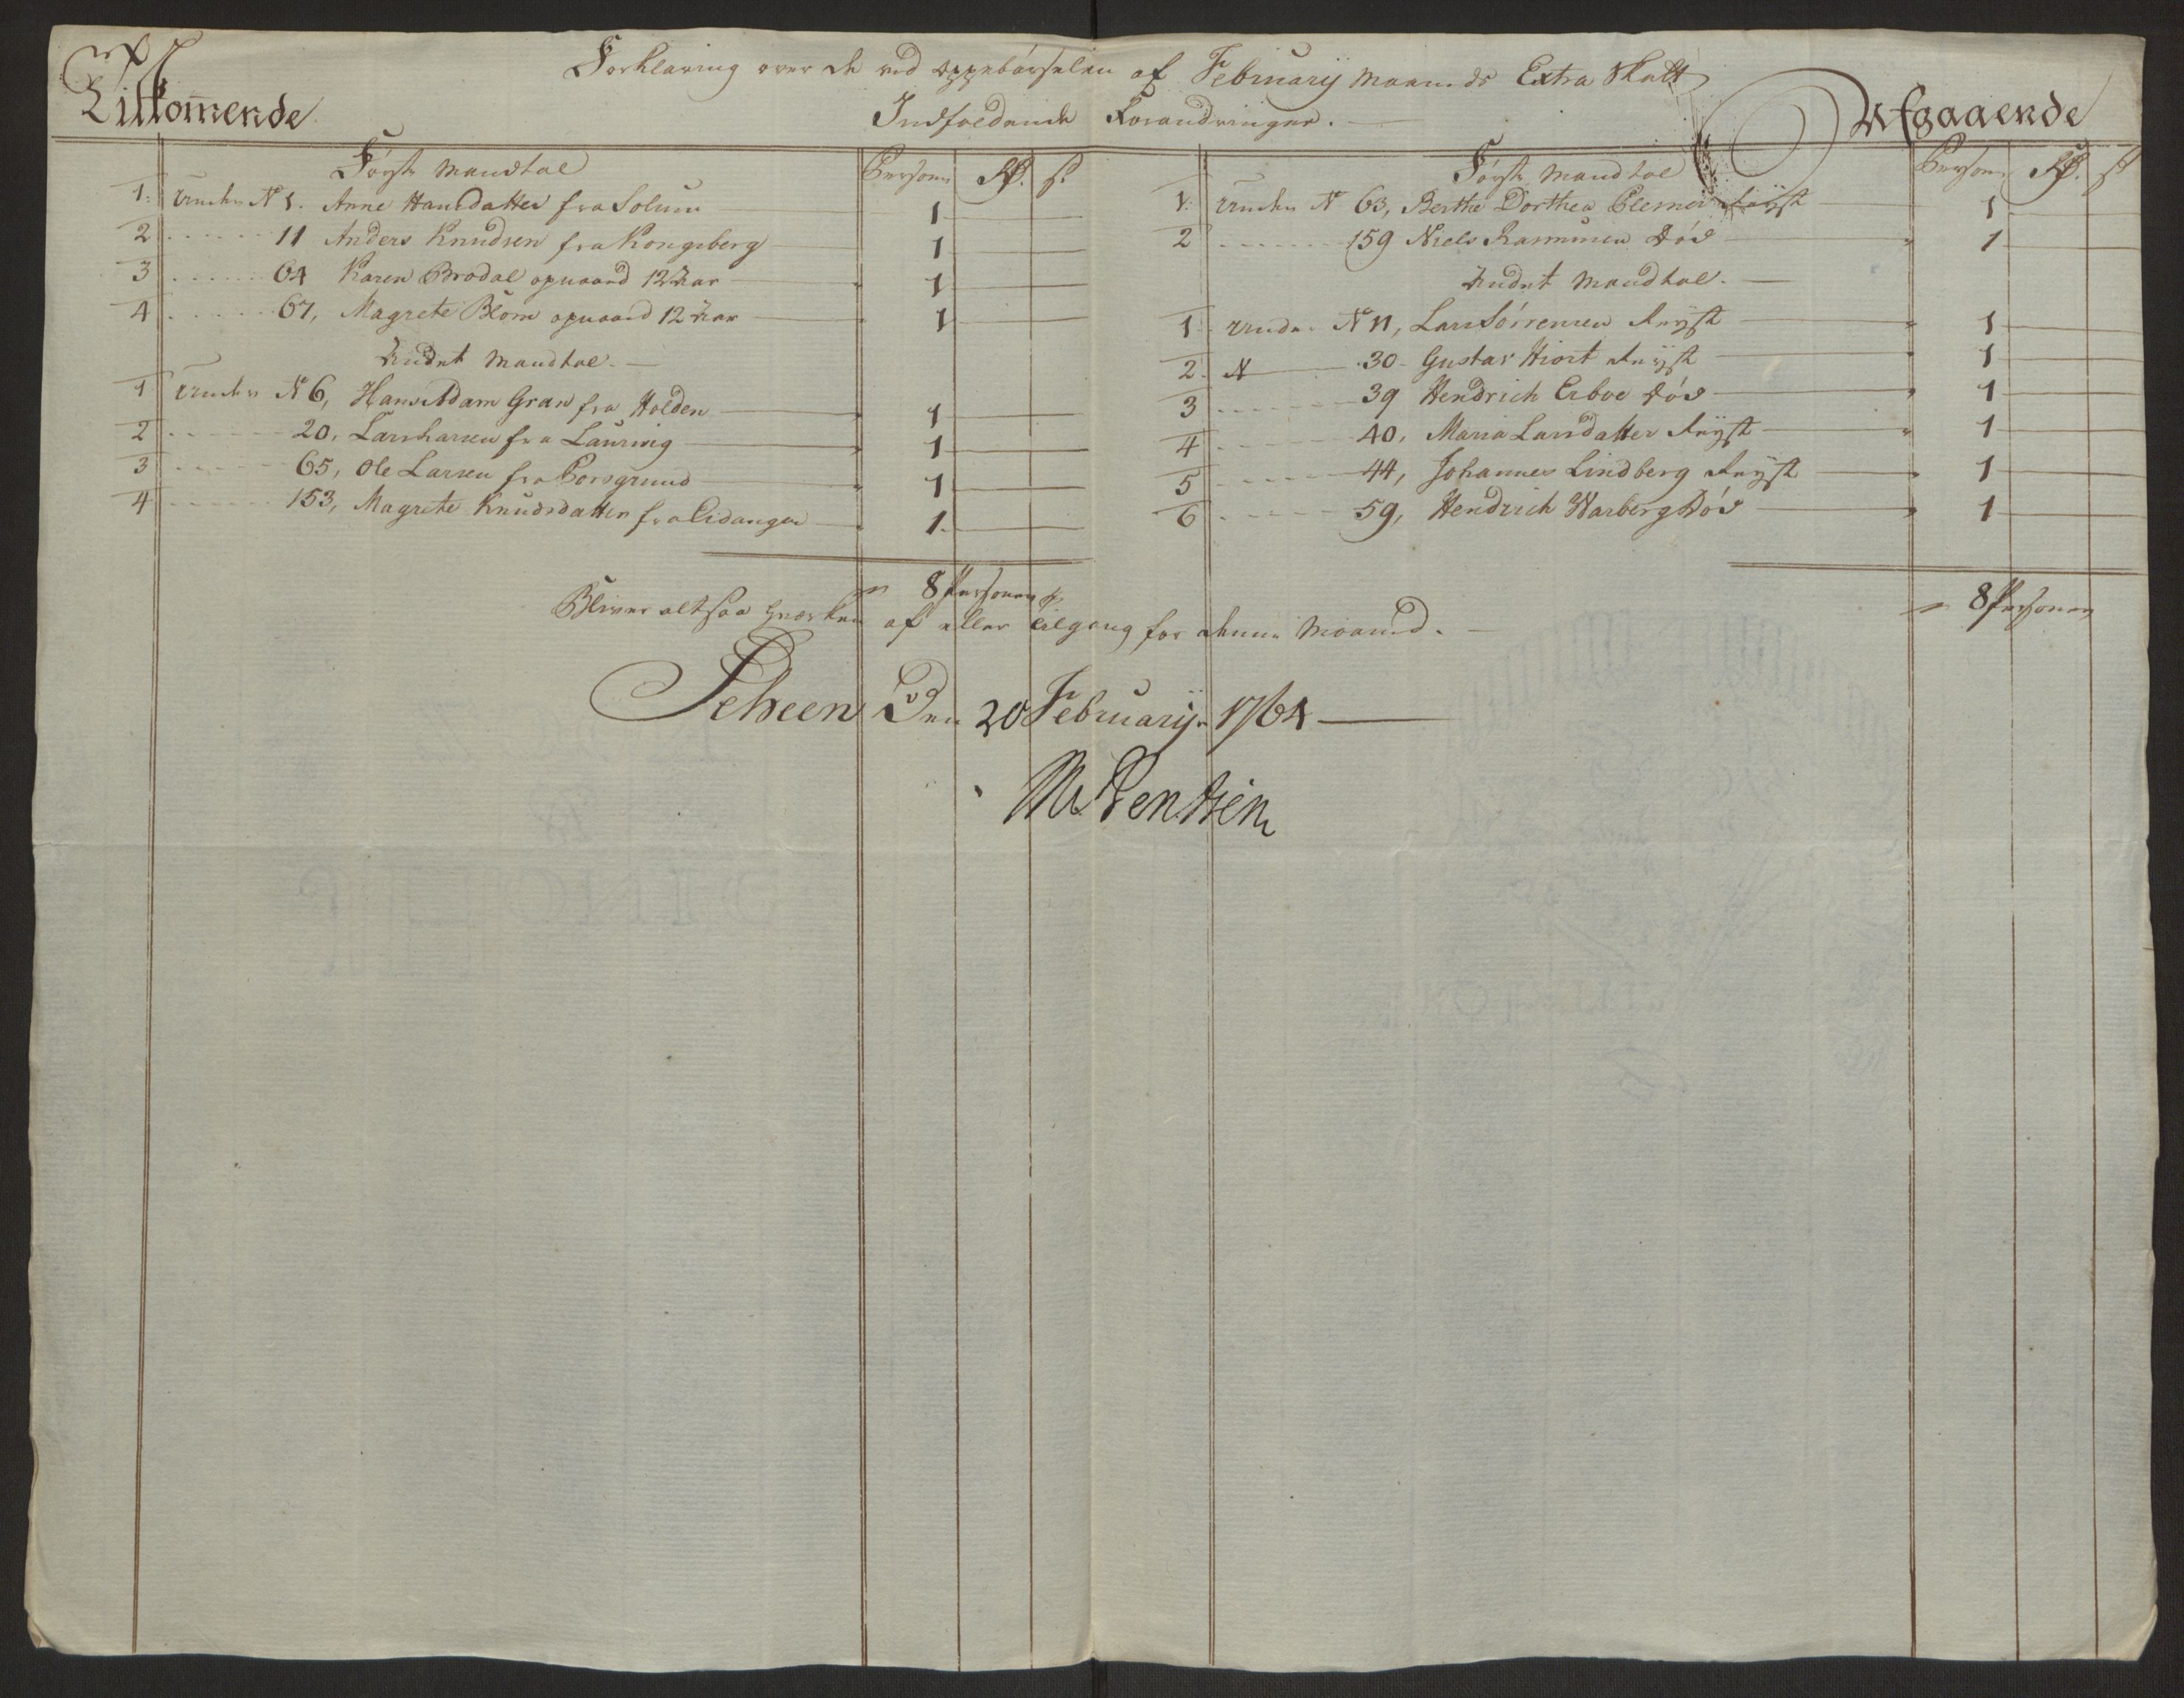 Forklaring over de ved oppebørselen af Februarij Maaneds Extra Skatt
Indfaldende Forandringer.
Tilkom̅ende
Første Mandtal Persone Rd. s.
1. Under No 1. Anne Hansdatter fra Solum 1
2 11 Anders Knudsen fra Kongsberg 1
3 64 Karen Brodal opnaaed 12 Aar 1
4 67, Magrete Blom opnaaed 12 Aar 1
Andet Mandtal.
1 Under No 6, Hans Adam Gran fra Holden 1
2 20, Lars Larsen fra Laurwig 1
3 65, Ole Larsen fra Porsgrund 1
4 153, Magrete Knudsdatter fra Eidanger 1
8 Personer
Afgaaende
Første Mandtal Persone Rd. s
1. Under No 63, Berthe Dorthea Clemen Reyst 1
2 159 Niels Rasmusen Død 1
Andet Mandtal.
1 Under No 11, Lars Sørrensen Reyst 1
2. N 30 Gustav Hiort Reyst 1
3 39 Hendrich Erboe Død 1
4 40, Maria Larsdatter Reyst 1
5 44, Johannes Lindberg Reyst 1
6 59, Hendrich Warberg Død 1
8 Personer
Bliver altsaa hverken af eller tilgang for denne Maaned.
Scheen Den 20 Februarij 1764